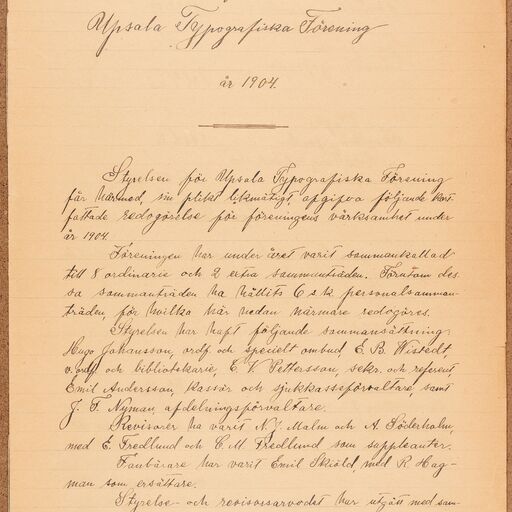 Upsala Typografiska Förening
år 1904.
Styrelsen för Upsala Typografiska Förening
får härmed, sin plikt likmätigt, afgifva följande kort
fattade redogörelse för föreningens värksamhet under
år 1904.
Föreningen har under året varit sammankallad
till 8 ordinarie och 2 extra sammanträden. Förutom des
sa sammanträden ha hållits 6 s.k. personalsamman-
träden, för hvilka här nedan närmare redogöres.
Styrelsen har haft följande sammansättning:
Hugo Johansson, ordf. och specielt ombud, E. B. Wistedt,
v. ordf. och bibliotekarie, E. V. Pettersson, sekr. och referent
Emil Andersson, kassör och sjukkassförvaltare, samt
J. F. Nyman, afdelningsförvaltare.
Revisorer ha varit N. J. Malm och A. Söderholm,
med E. Fredlund och C. M. Fredlund som suppleanter.
Fanbärare har varit Emil Skiöld, med R. Hag-
man som ersättare.
Styrelse- och revisorsarvodet har utgått med sam-